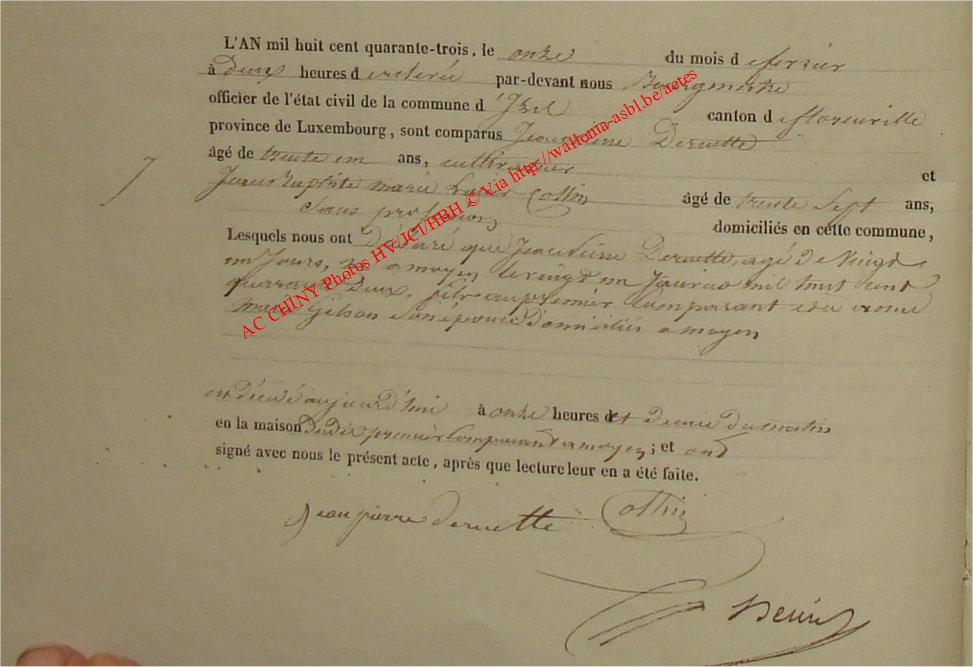 L'AN mil huit cent quarante-trois, le onze du mois d e fevrier
à deux heures d e relevée par-devant nous Bourgmestre
officier de l'état civil de la commune d 'Izel canton d e florenville
province de Luxembourg, sont comparus Jean pierre Deruette
âgé de trente un ans, cultivateur et
Jean Baptiste marie Collin âgé de trente sept ans,
Sans profession domiciliés en cette commune,
Lesquels nous ont Déclaré que Jean pierre Deruette, agé de vingt
un Jours, né a moyen le vingt un Janvier mil huit cent
quarante deux, fils au premier comparant et a anne
marie Gilson Son epouse Domiciliés a moyen
est décédé aujourd'hui à onze heures d et demie du matin
en la maison Dudit premier Comparant a moyen; et ont
signé avec nous le présent acte, après que lecture leur en a été faite.
Jean pierre deruette Collin
7
AC CHINY Photos HV.JCI/HBH © Via http://wallonia-asbl.be/actes